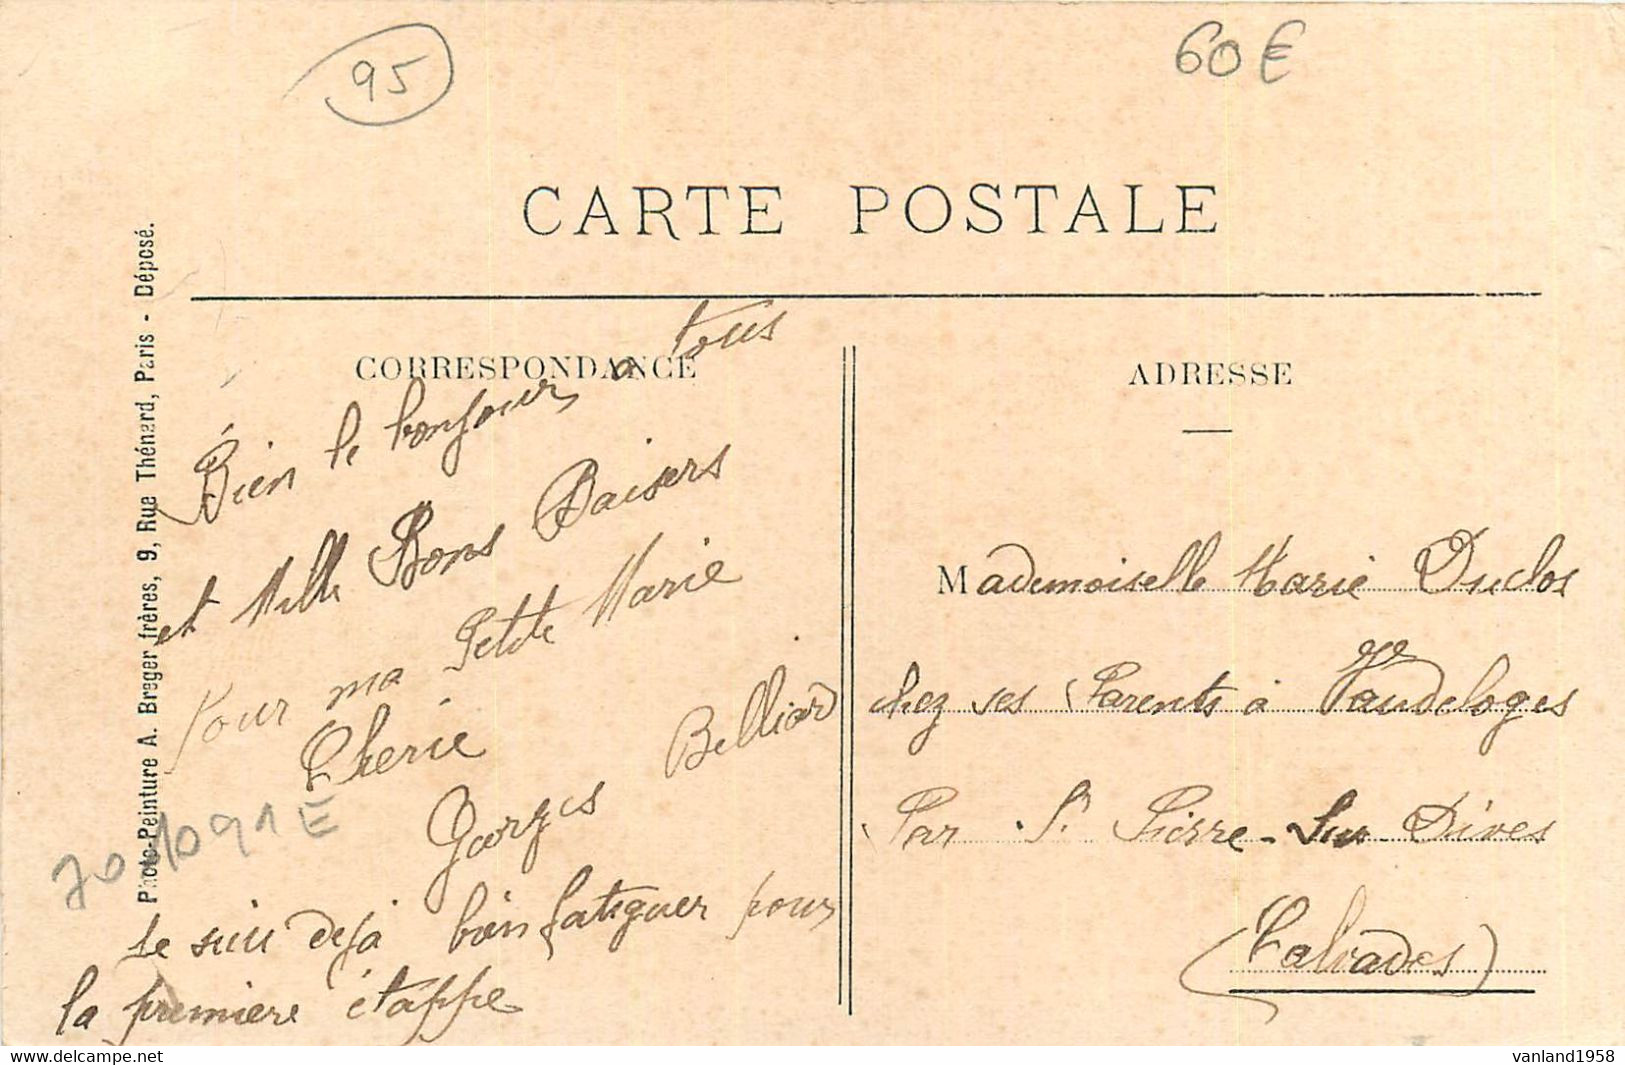 95
60€
CARTE POSTALE
CORRESPONDANCE
Bien le bonjour a tous
et Mille Bons Baisers
Pour ma Petite Marie
Cherie
Gorges Belliard
Je suis deja bien fatiguer pour
la premiere étappe
ADRESSE
Mademoiselle Marie Duclos
chez ses Parents à Vaudeloges
Par St Pierre-Sur Dives
(Calvados)
Photo-Peinture A. Breger frères, 9, Rue Thénard, Paris - Déposé.
vanland1958